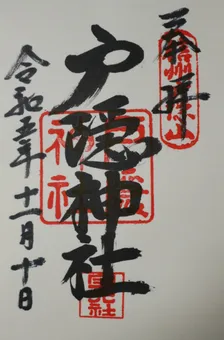 奉拝
信州戸隠山
戸隠神社
戸隠神社
令和五年十一月十日